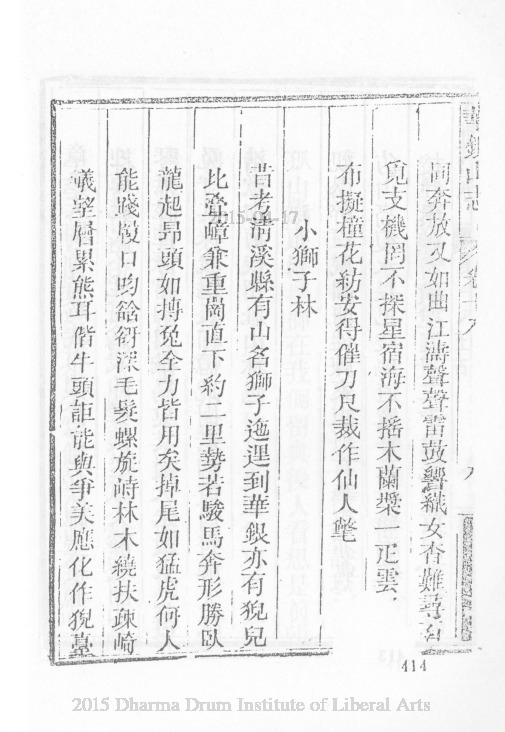 華銀山志 卷十九 九
同奔放又如曲江濤聲聲雷鼓響織女杳難尋
覓支機罔不探星宿海不搖木蘭槳一疋雲
布擬撞花紡安得催刀尺裁作仙人氅
小獅子林
昔考清溪縣有山名獅子迤邐到華銀亦有猊兒
比疊嶂兼重崗直下約二里勢若駿馬奔形勝臥
龍起昂頭如搏兔全力皆用矣掉尾如猛虎何人
能踐履口呀谽谺深毛髮螺旋峙林木繞扶疎崎
嶬望層累熊耳偕牛頭詎能與爭美應化作猊臺
414
2015-04-17
2015 Dharma Drum Institute of Liberal Arts